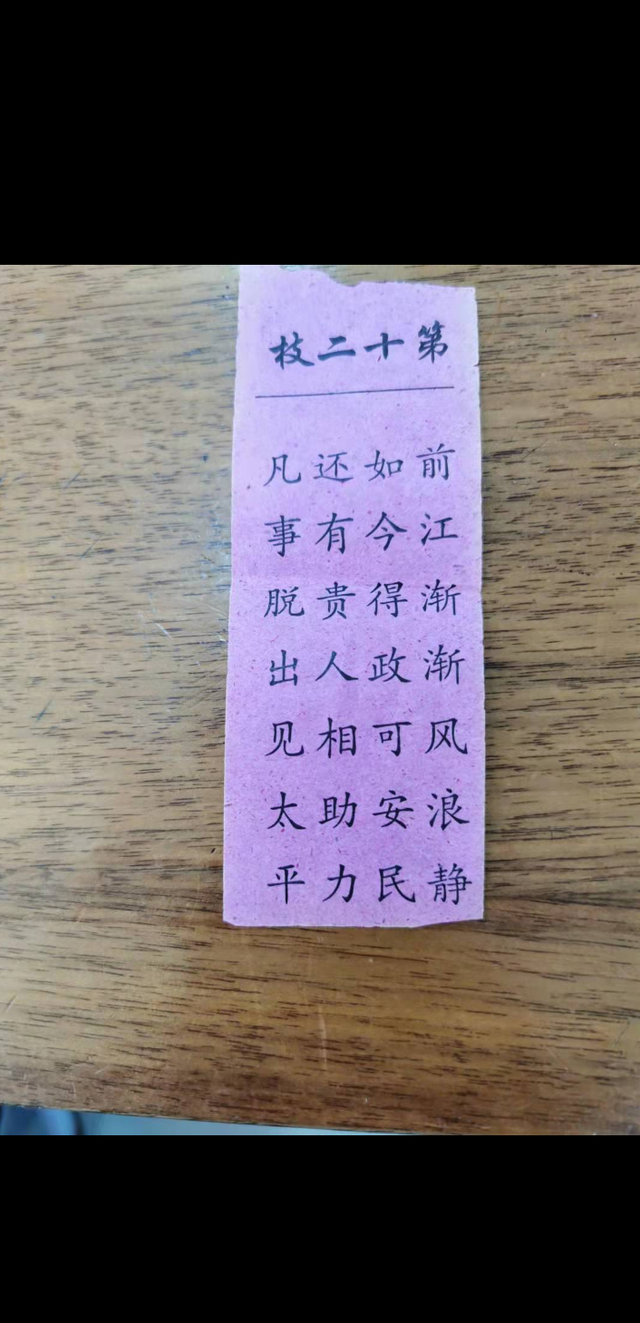 第十二枝
前江渐渐风浪静
如今得政可安民
还有贵人相助力
凡事脱出见太平